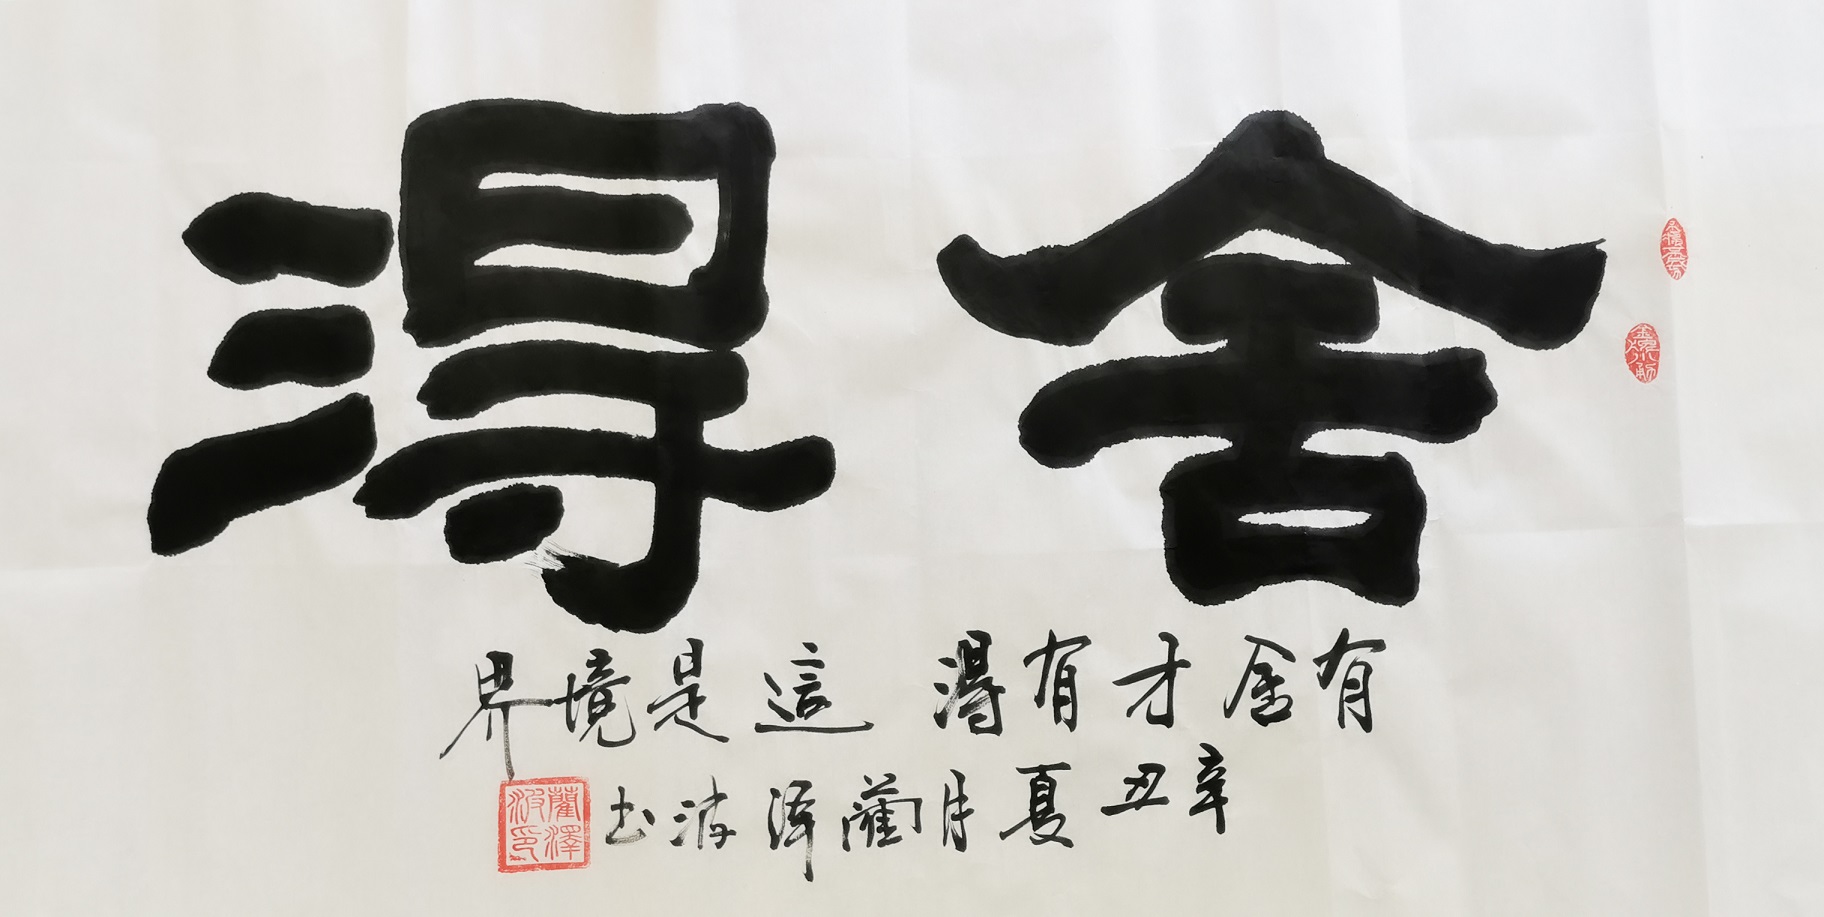 舍得
有舍才有得 這是境界
辛丑夏月藺泽波书
藺澤波印